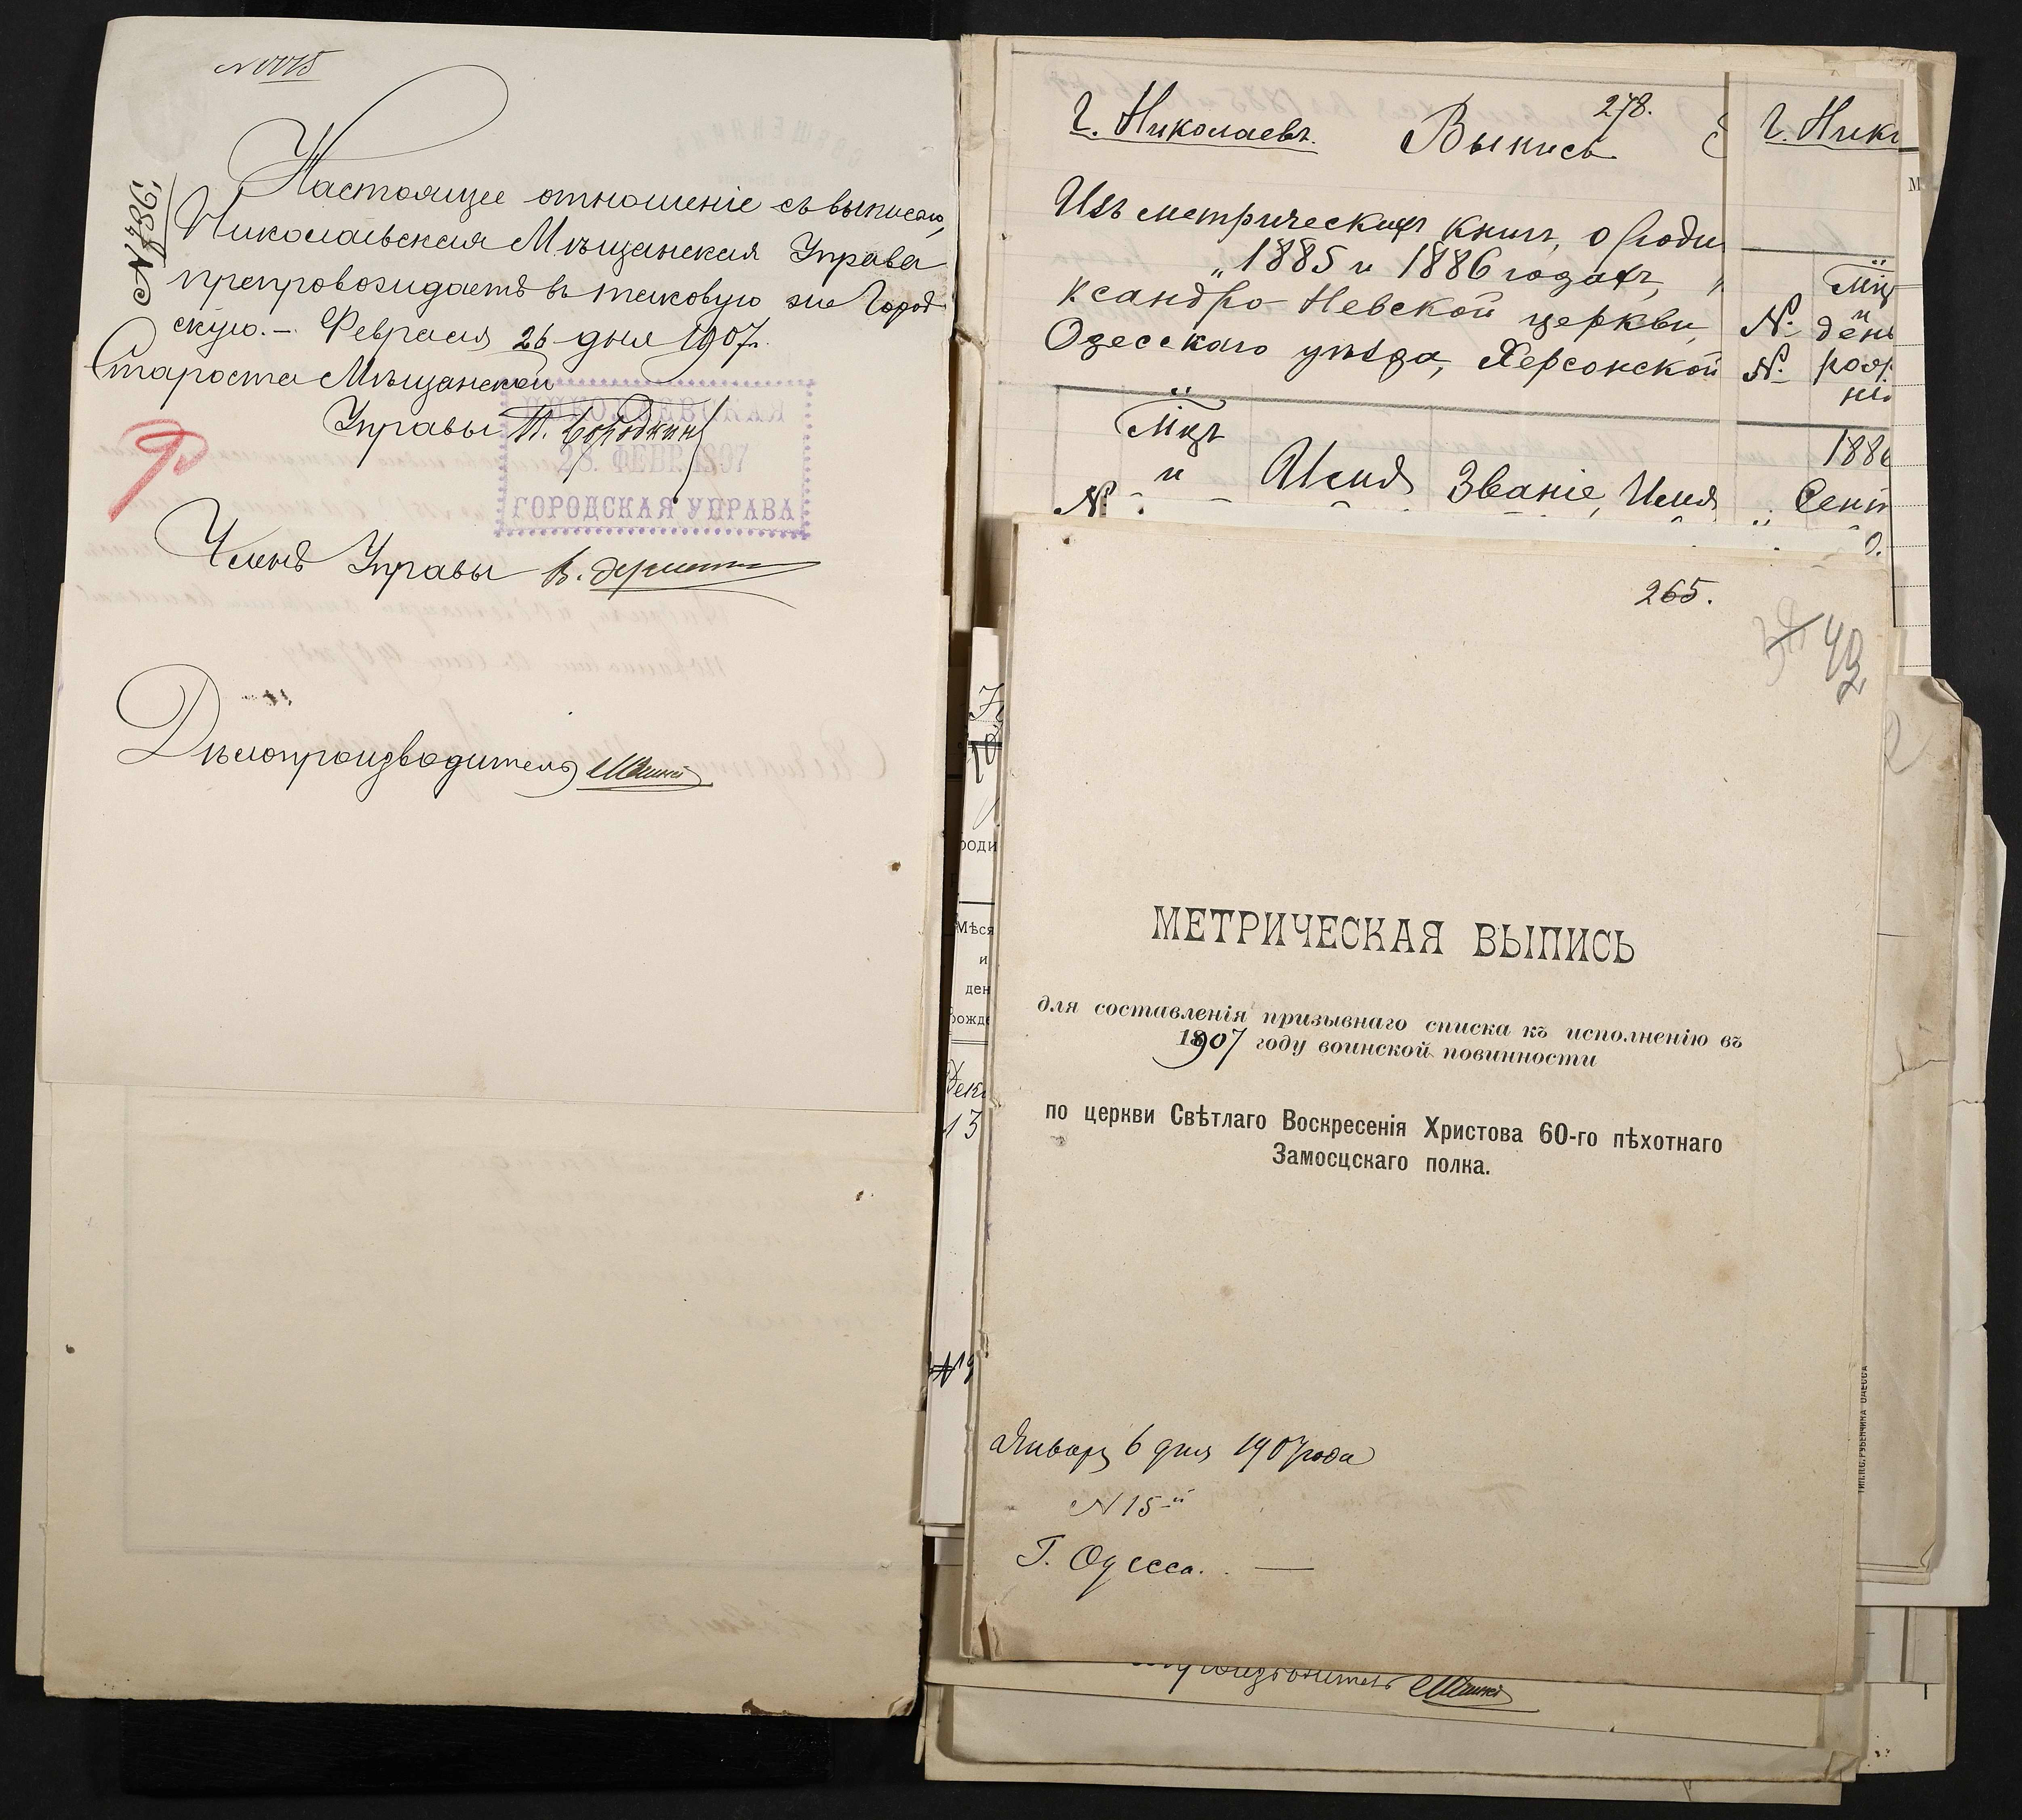 Настоящее отношеніе съ выписью,
Николаевская Мѣщанская Управа
препровождаетъ въ таковую же Город
скую. — Февраля 26 дня 1907 г.
Староста Мѣщанской
Управы
№ 786.
НИКОЛАЕВСКАЯ
28. ФЕВР. 1907
ГОРОДСКАЯ УПРАВА
Членъ Управы
Дѣлопроизводитель
278.
г. Николаевъ. Выпись
Изъ метрическихъ книгъ, о роди
„1885 и 1886 годахъ, „
ксандро-Невской церкви,
Одесскаго уѣзда, Херсонской
Мцъ
и
№ Имя Званіе, Имя
г. Нико
Мцъ
и
№ день
№ рож
ні
1886
Сент
265.
42
МЕТРИЧЕСКАЯ ВЫПИСЬ
для составленія призывнаго списка къ исполненію въ
1907 году воинской повинности
по церкви Свѣтлаго Воскресенія Христова 60-го пѣхотнаго
Замосцскаго полка.
Январь 6 дня 1907 года
N 15-й
Г. Одесса. —
роди
Мѣся
и
ден
рожде
Дека
13